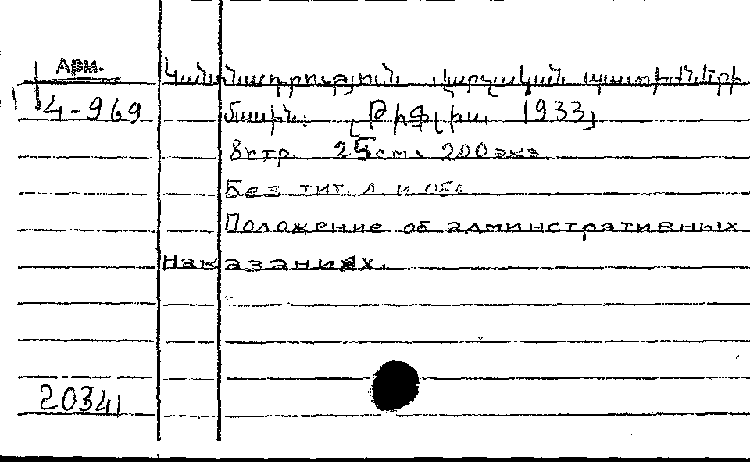 Арм.
4-969
Կանոնադրություն վարչական պատիժների
մասին. [Թիֆլիս 1933]
8 стр. 25 см. 200 экз.
Без тит. л. и обл.
Положение об админстративных
наказаниях.
20341